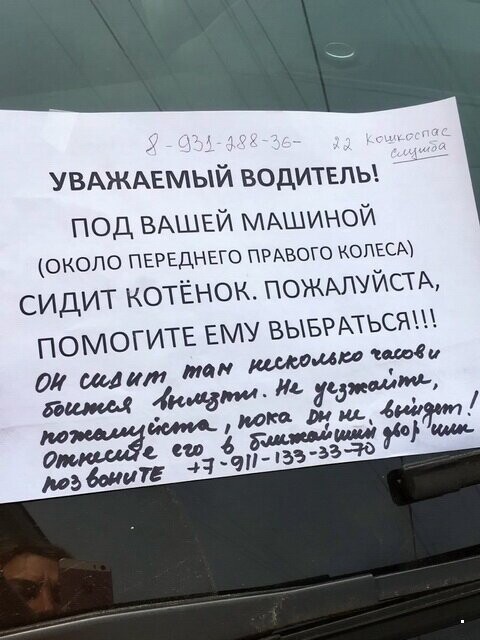 8-931-288-36-22 Кошкоспас
служба
УВАЖАЕМЫЙ ВОДИТЕЛЬ!
ПОД ВАШЕЙ МАШИНОЙ
(ОКОЛО ПЕРЕДНЕГО ПРАВОГО КОЛЕСА)
СИДИТ КОТЁНОК. ПОЖАЛУЙСТА,
ПОМОГИТЕ ЕМУ ВЫБРАТЬСЯ!!!
Он сидит там несколько часов и
боится вылезти. Не уезжайте,
пожалуйста, пока он не выйдет!
Отнесите его в ближайший двор или
позвоните +7-911-133-33-70